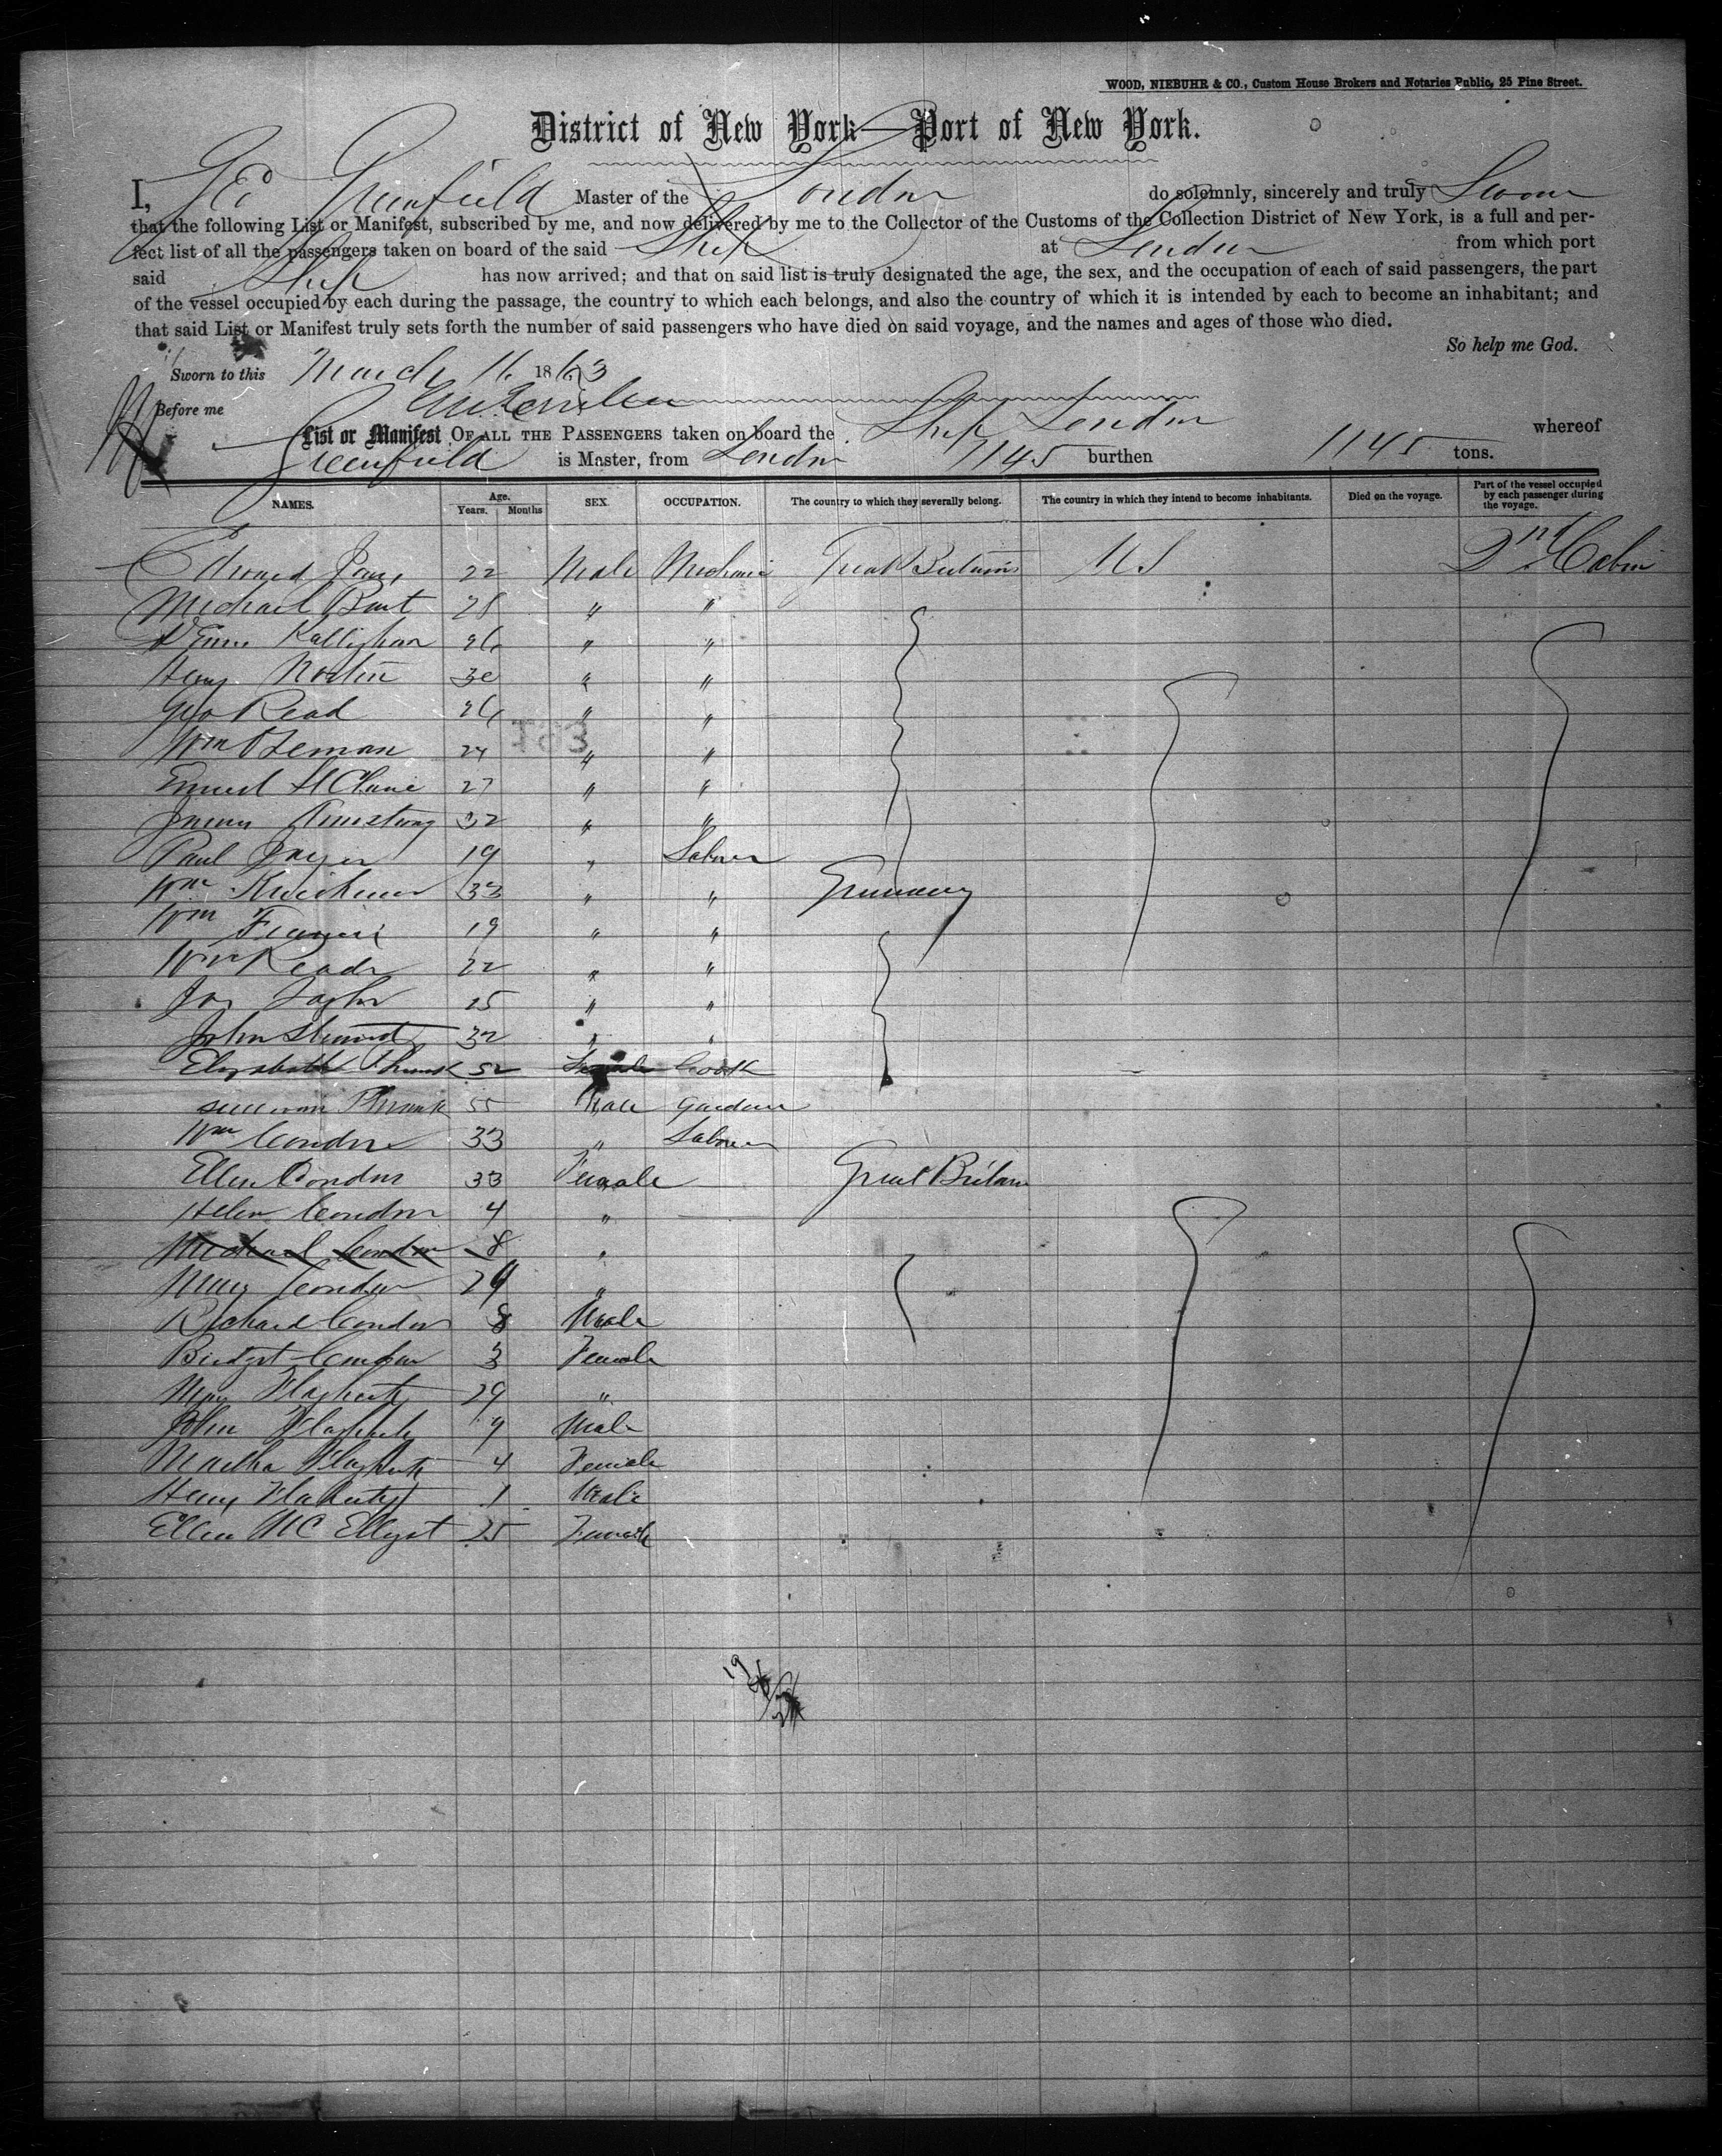 WOOD, NIEBUHR & CO., Custom House Brokers and Notaries Public, 25 Pine Street.
District of New York—Port of New York.
I, Geo Greenfield Master of the London do solemnly, sincerely and truly Swear
that the following List or Manifest, subscribed by me, and now delivered by me to the Collector of the Customs of the Collection District of New York, is a full and per-
fect list of all the passengers taken on board of the said Ship at London from which port
said Ship has now arrived; and that on said list is truly designated the age, the sex, and the occupation of each of said passengers, the part
of the vessel occupied by each during the passage, the country to which each belongs, and also the country of which it is intended by each to become an inhabitant; and
that said List or Manifest truly sets forth the number of said passengers who have died on said voyage, and the names and ages of those who died.
So help me God.
Sworn to this March 11. 1863
Before me
List or Manifest OF ALL THE PASSENGERS taken on board the Ship London whereof
Greenfield is Master, from London 1145 burthen 1145 tons.
NAMES. Age. Years. Months SEX. OCCUPATION. The country to which they severally belong. The country in which they intend to become inhabitants. Died on the voyage. Part of the vessel occupied by each passenger during the voyage.
Edward 22 Male Mechanic Great Britain U.S 2nd Cabin
Michael 28 " "
26 " "
Henry 30 " "
Geo Read 26 " "
Wm Beman 24 " "
27 " "
James Armstrong 32 " "
Paul 19 " Labourer
Wm 33 " " Germany
Wm Francis 19 " "
Wm Reade 22 " "
Jas Taylor 25 " "
John 32 " "
Elizabeth 52 Female Cook
55 Male Gardener
Wm Condon 33 " Labourer
Ellen Condon 33 Female Great Britain
Helen Condon 4 "
Michael Condon 8 "
Mary Condon 29 "
Richard Condon 8 Male
Bridget Condon 3 Female
Mary Flagherty 29 "
John Flagherty 9 Male
Martha Flagherty 4 Female
Henry Flaherty 1 Male
Ellen 25 Female